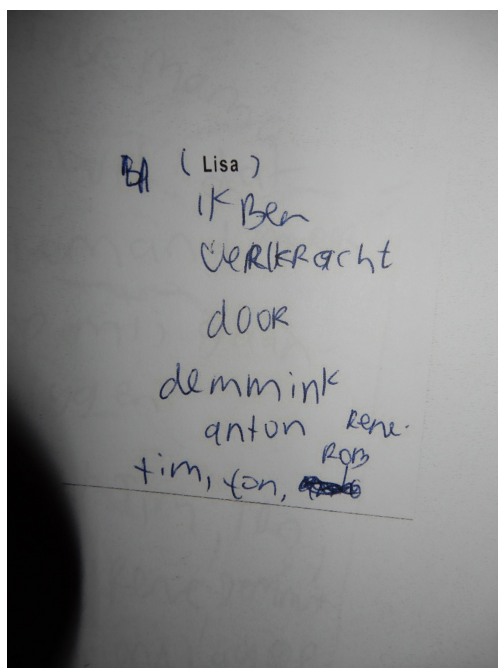 BA (Lisa)
ik Ben
VeRkRacht
dooR
demmink
anton Rene.
RoB
tim, ton,